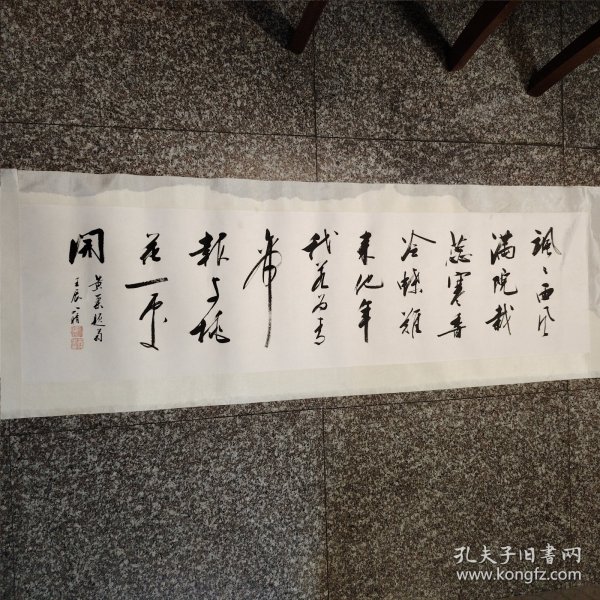 飒〻西风
满院栽
蕊寒香
冷蝶难
来他年
我若为青
帝
报与桃
花一处
開
黄巢题菊
壬辰
孔夫子旧书网
www.kongfz.com